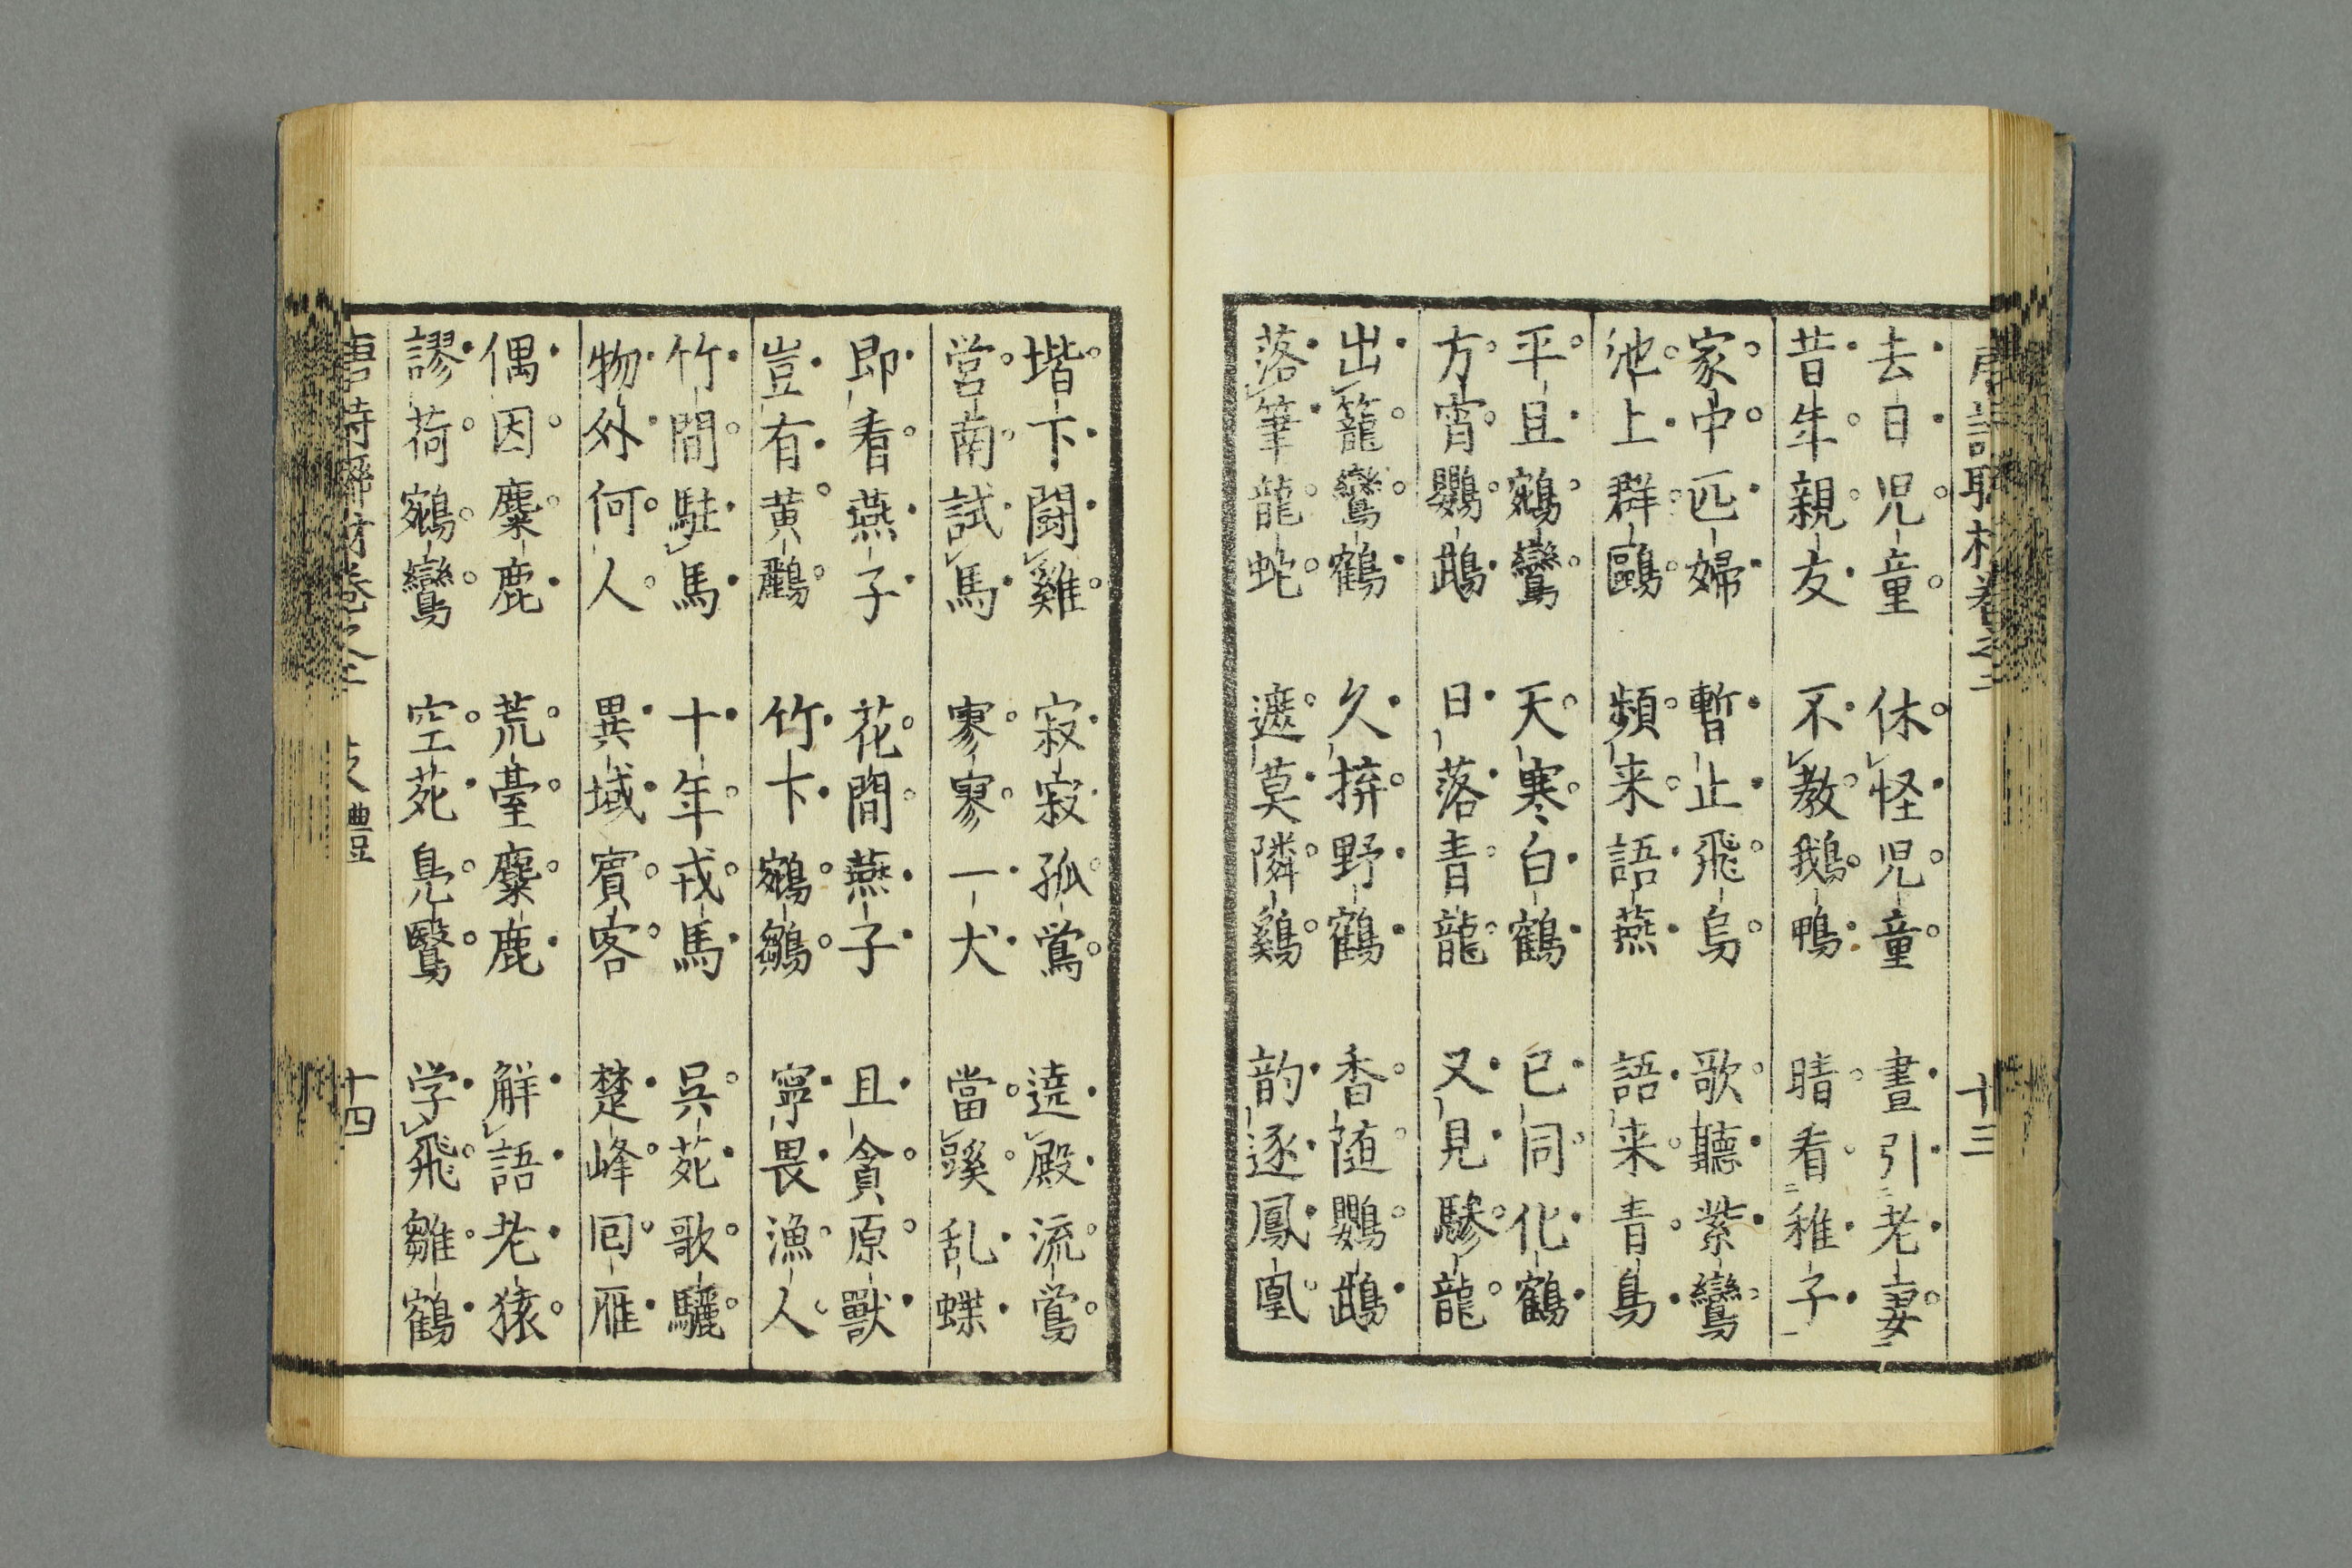 去日児童 休怪児童 晝引老妻
昔年親友 不教鵝鴨 晴看稚子
家中匹婦 暫止飛烏 歌聽紫鸞
池上群鷗 頻来語燕 語来青鳥
平且鵷鸞 天寒白鶴 已同化鶴
方宵鸚鵡 日落青龍 又見驂龍
出籠鸞鶴 久捹野鶴 香随鸚鵡
落筆龍蛇 遮莫隣鷄 韵逐鳳凰
堦下闘雞 寂寂孤鴬 遶殿流鴬
営南試馬 寥寥一犬 當蹊乱蝶
即看燕子 花間燕子 且貪原獸
豈有黄鸝 竹下鵷鶵 寧畏漁人
竹間駐馬 十年戎馬 呉苑歌驪
物外何人 異域賓客 楚峰囘雁
偶因麋鹿 荒臺麋鹿 解語老猿
謬荷鵷鸞 空苑鳧鷖 学飛雛鶴
十三
十四